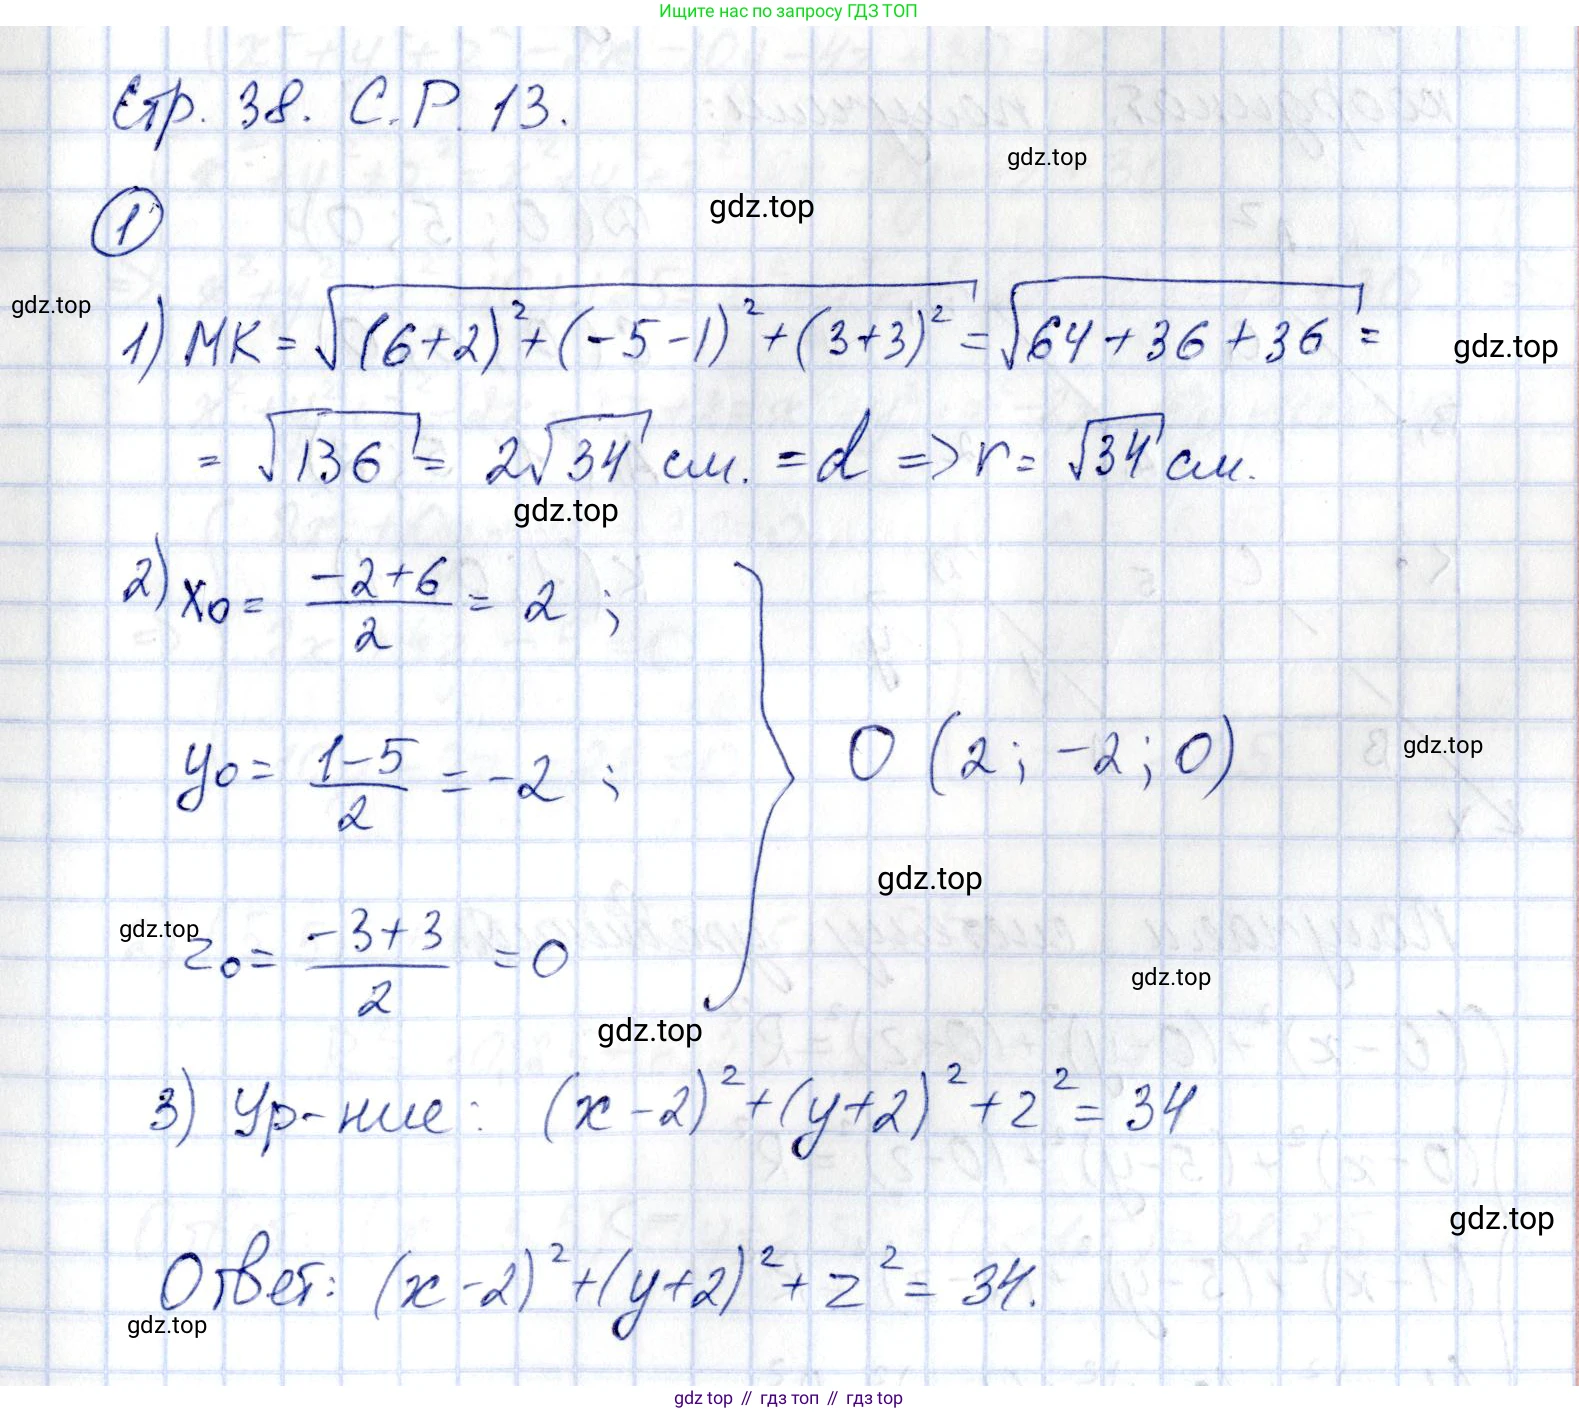 Ищите нас по запросу ГДЗ ТОП
Стр. 38. С.Р. 13.
gdz.top
gdz.top
1
gdz.top
1) MK = √((6+2)²+(-5-1)²+(3+3)²) = √(64+36+36) =
gdz.top
= √136 = 2√34 см. = d => r = √34 см.
gdz.top
2) x₀ = (-2+6)/2 = 2 ;
y₀ = (1-5)/2 = -2 ;
O (2; -2; 0)
gdz.top
gdz.top
gdz.top
z₀ = (-3+3)/2 = 0
gdz.top
gdz.top
3) Ур-ние: (x-2)²+(y+2)²+z²=34
gdz.top
Ответ: (x-2)²+(y+2)²+z²=34.
gdz.top
gdz top // гдз топ // гдз top